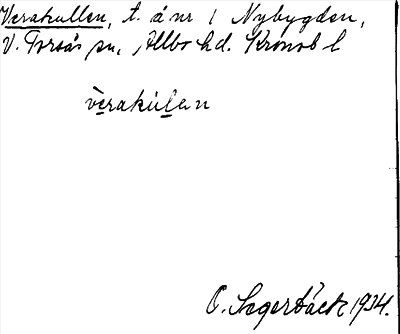 Verakullen, t. å nr 1 Nybygden,
V. Torsås sn, Allbo hd. Kronob l
vèrakùlen
O. Sagerbäck 1934.